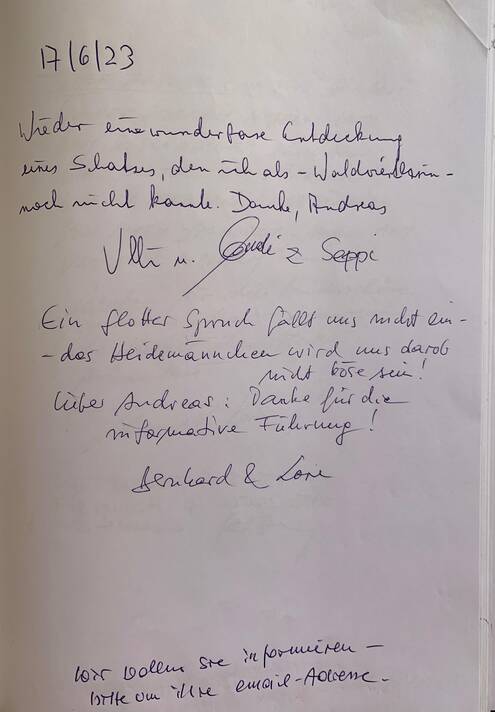 17/6/23
Wieder eine wunderbare Entdeckung
eines Schatzes, den ich als - Waldviertlerin -
noch nicht kannte. Danke, Andreas
Ulli u. & Seppi
Ein flotter Spruch fällt uns nicht ein -
- das Heidemännchen wird uns darob
nicht böse sein!
Lieber Andreas: Danke für die
informative Führung!
Bernhard & Lore
Wir wollen sie informieren -
bitte um ihre email-Adresse.